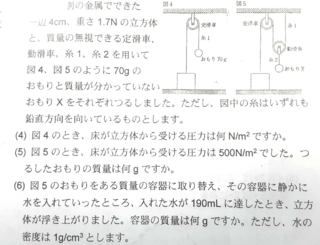 図4
図5
別の金属でできた
一辺 4cm、重さ 1.7N の立方体
と、質量の無視できる定滑車、
動滑車、糸1、糸2 を用いて
図 4、図 5 のように 70g の
おもりと質量が分かっていない
定滑車
糸1
おもり70g
定滑車
糸1
動滑車
糸2
おもりX
おもり X をそれぞれつるしました。ただし、図中の糸はいずれも
鉛直方向を向いているものとします。
(4) 図 4 のとき、床が立方体から受ける圧力は何 N/m² ですか。
(5) 図 5 のとき、床が立方体から受ける圧力は 500N/m² でした。つ
るしたおもりの質量は何 g ですか。
(6) 図 5 のおもりをある質量の容器に取り替え、その容器に静かに
水を入れていったところ、入れた水が 190mL に達したとき、立方
体が浮き上がりました。容器の質量は何 g ですか。ただし、水の
密度は 1g/cm³ とします。